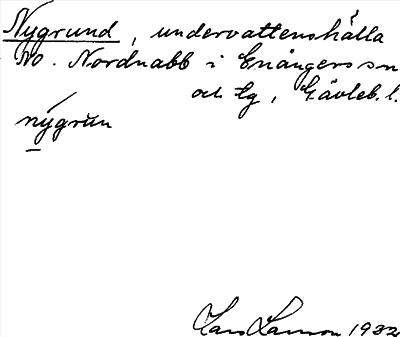 Nygrund, undervattenshälla
No. Nordnabb i Enångers sn
och tg, Gävleb. l.
nýgrun
Lars Larsson 1932